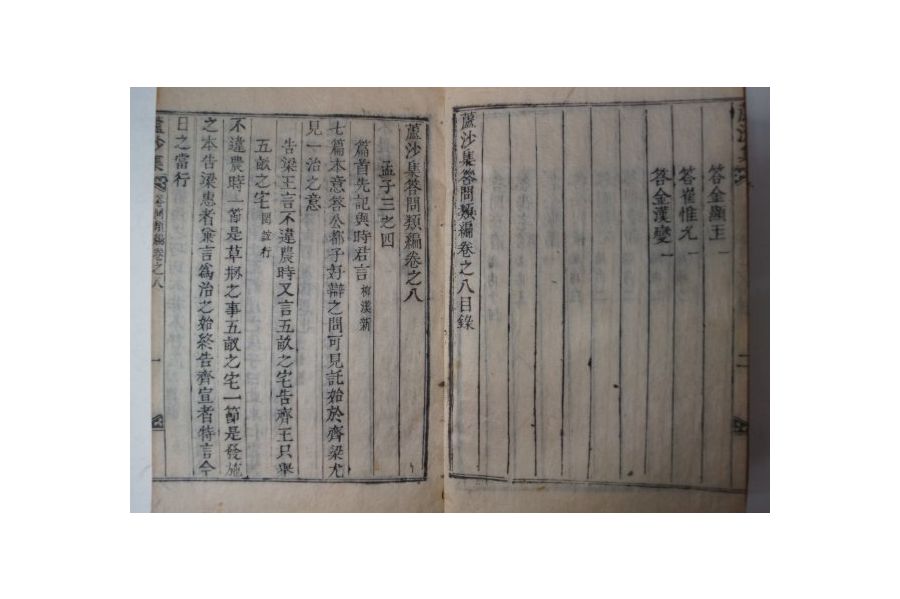 蘆沙集 二
答金顯玉 一
答崔惟允 一
答金漢燮 一
蘆沙集答問類編卷之八目錄
蘆沙集答問類編卷之八
孟子三之四
篇首先記與時君言 柳漢新
七篇本意答公都子好辯之問可見託始於齊梁尤
見一治之意
告梁王言不違農時又言五畝之宅告齊王只擧
五畝之宅 閔 行
不違農時一節是草刱之事五畝之宅一節是發施
之本告梁惠者兼言爲治之始終告齊宣者特言今
日之當行
蘆沙集 答問類編卷之八 一